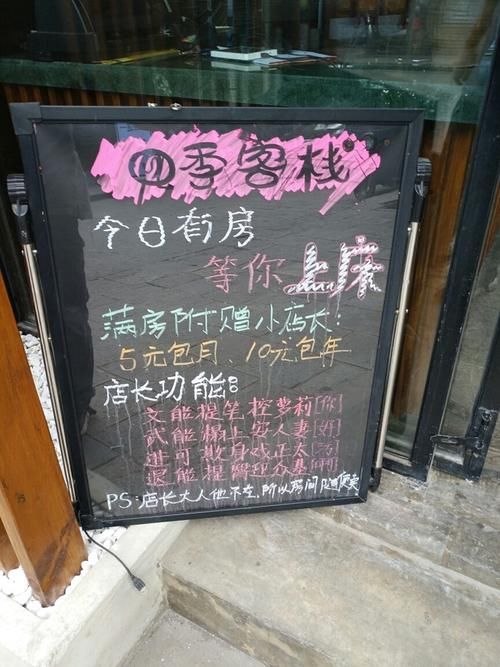 四季客栈
今日有房
等你上床
满房附赠小店长:
5元包月、10元包年
店长功能:
文能提笔控萝莉[你]
武能榻上安人妻[好]
进可欺身戏正太[污]
退能提臀迎众基[啊]
PS:店长大人他不在,所以房间随便卖